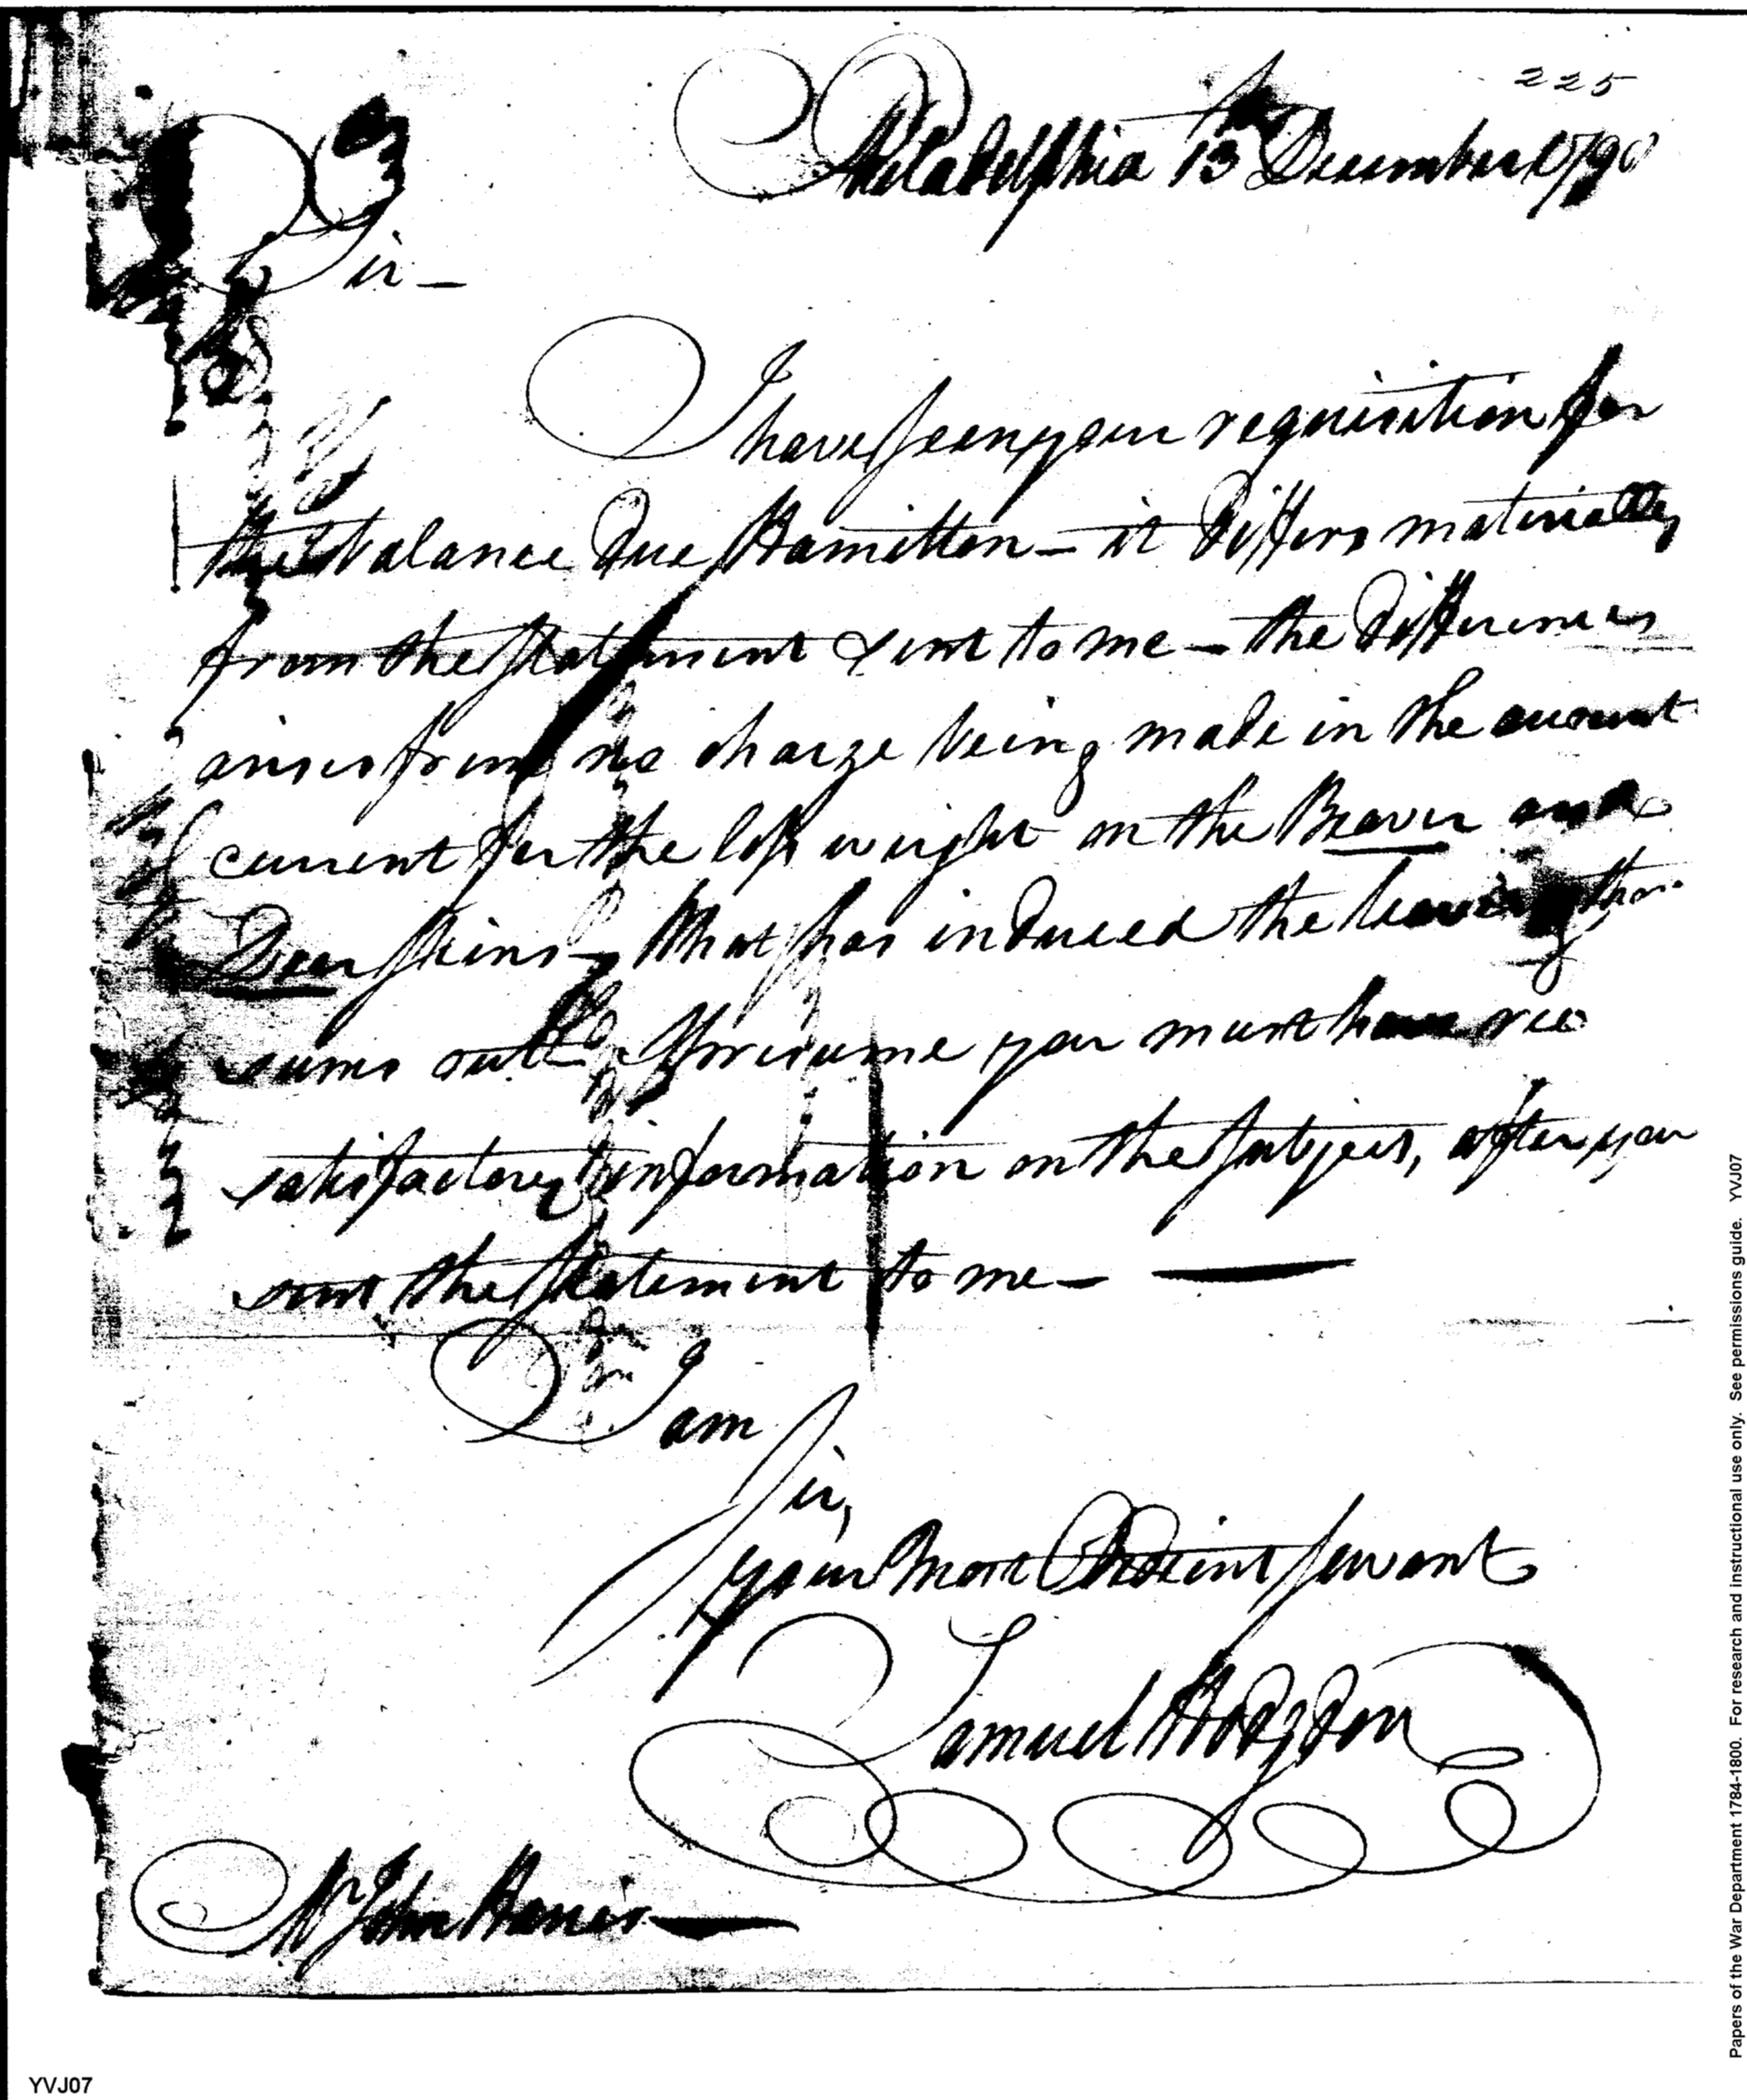 225
Philadelphia 13 December 179
Sir —
I have seen your requisition for
the balance due Hamilton — it differs materially
from the statement sent to me — the differences
arises from no charge being made in the account
current for the loss weight on the Beaver and
Deer skins — What has induced the leaving
sums out I presume you must have
satisfactory information on the subject, after you
sent the statement to me —
I am
Sir,
your most Obedient servant
Samuel Hodgdon
Mr John Harris —
Papers of the War Department 1784-1800. For research and instructional use only. See permissions guide. YVJ07
YVJ07